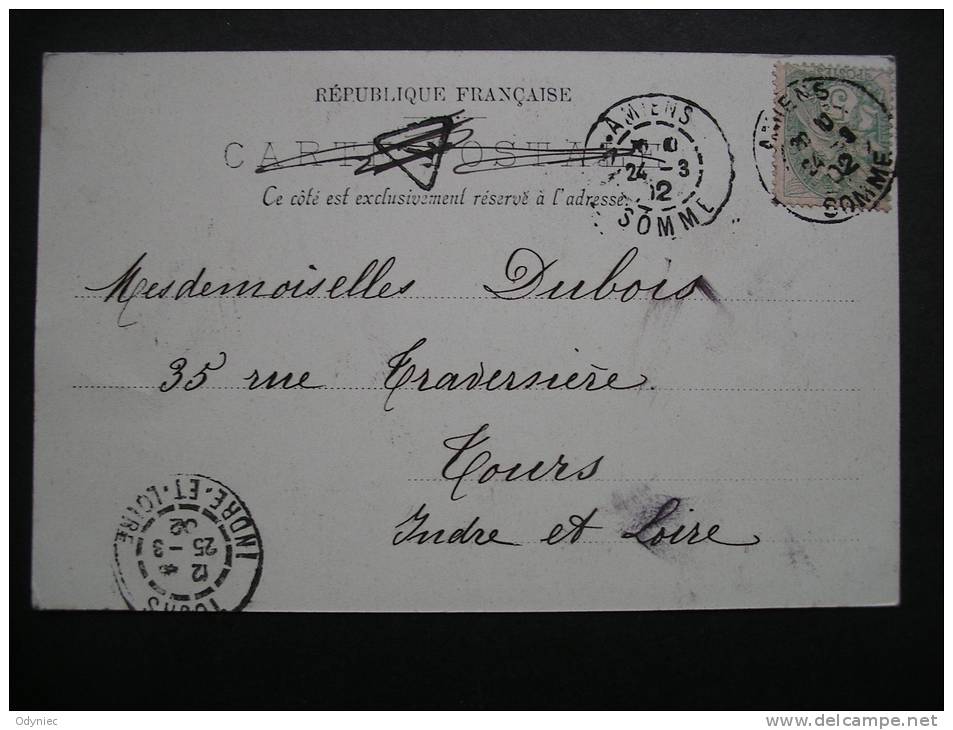 RÉPUBLIQUE FRANÇAISE
CARTE POSTALE
Ce côté est exclusivement réservé à l'adresse.
AMIENS
24 -3
02
SOMME
AMIENS
24
02
SOMME
Mesdemoiselles Dubois
35 rue Traversière.
Tours
Indre et Loire
TOURS
12
25 -3
02
INDRE-ET-LOIRE
Odyniec
www.delcampe.net